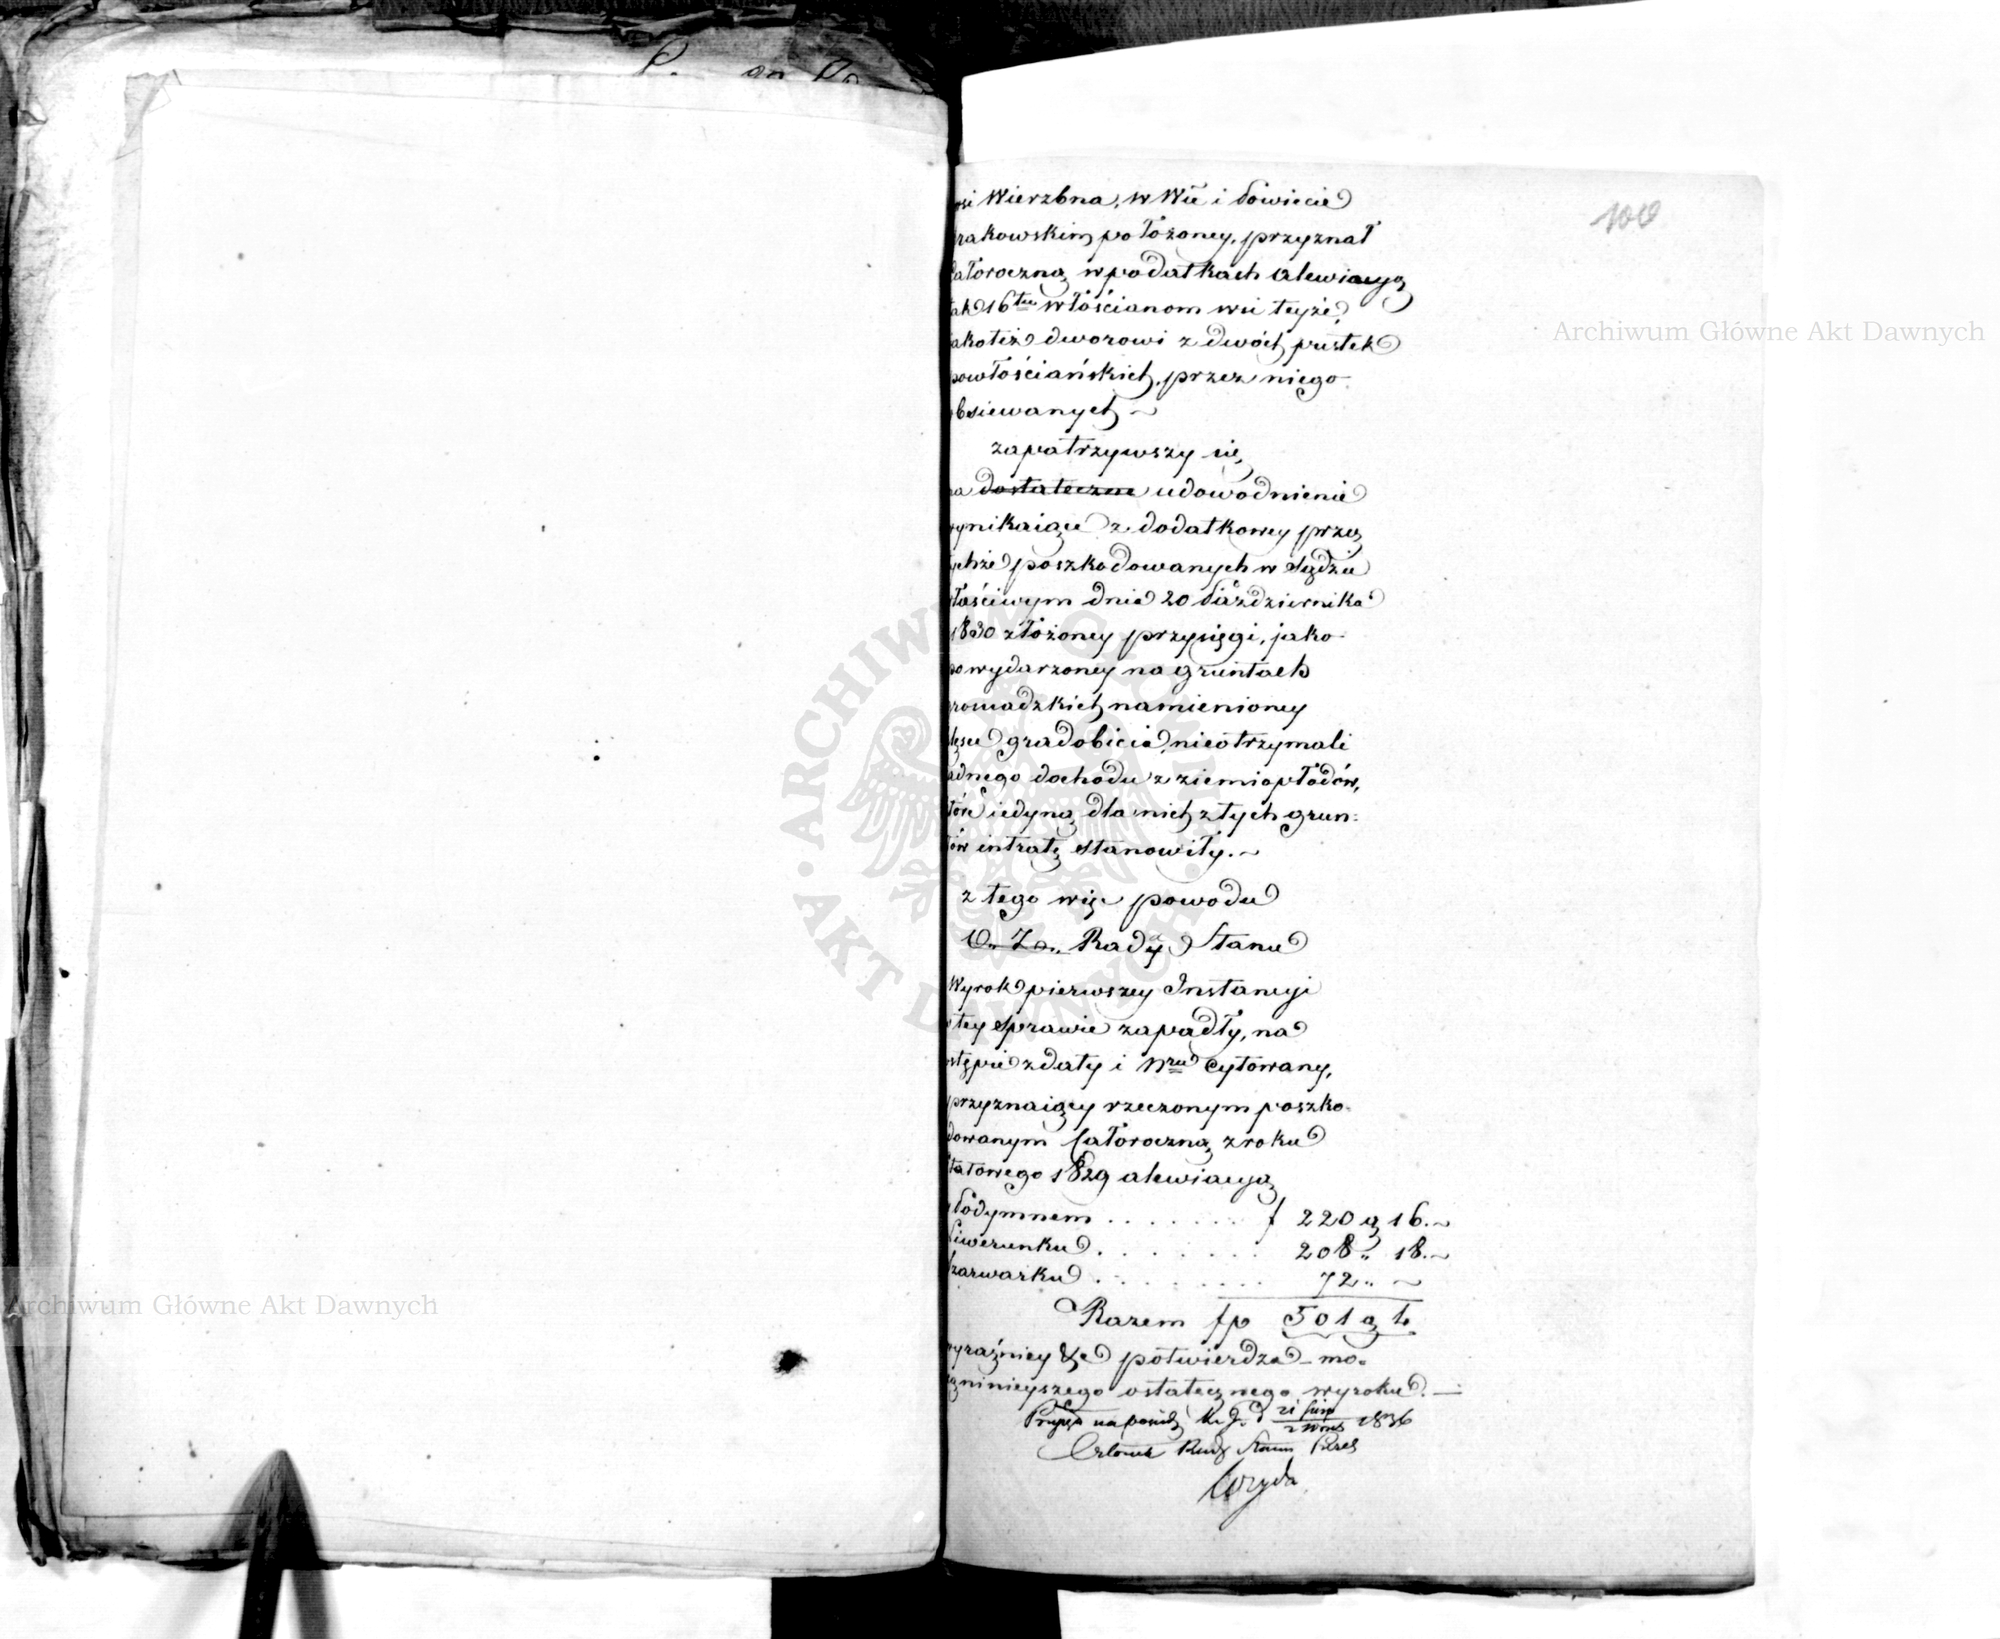 100
wsi Wierzbna, w Wie i Powiecie
rakowskim położoney, przyznał
całoroczną w podatkach alewiacyą
tak 16tu włościanom wsi teyże,
jakoteż dworowi z dwóch pustek
powłościańskich, przez niego
obsiewanych ~
zapatrzywszy się
na dostateczne udowodnienie
wynikaiące z dodatkowey przez
tychże poszkodowanych w Sądzie
właściwym dnia 20 Października
1830 złożoney przysięgi, jako
po wydarzoney na gruntach
gromadzkich namienioney
klęsce gradobicia, nieotrzymali
żadnego dochodu z ziemiopłodów,
które iedyną dla nich z tych grun=
tów intratę stanowiły. ~
z tego więc powodu
Rady Stanu
Wyrok pierwszey Instancyi
w tey sprawie zapadły, na
wstępie z daty i Nru cytowany,
przyznaiący rzeczonym poszko=
dowanym całoroczną z roku
etatowego 1829 alewiacyą
w Podymnem . . . . . . . f 220 g 16. ~
Liwerunku . . . . . . . 208 „ 18. ~
Szarwarku . . . . . . . 72 „ ~
Razem fp 501 g 4
wyraźniey &c potwierdza mo=
cą ninieyszego ostatecznego wyroku. —
na 1836
Członek Rady Stanu
Archiwum Główne Akt Dawnych
Archiwum Główne Akt Dawnych
ARCHIWUM GŁÓWNE AKT DAWNYCH